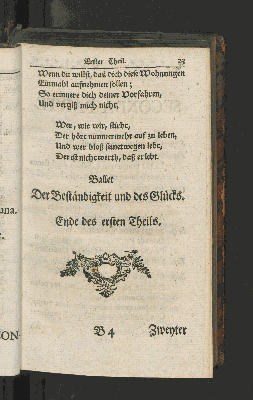 Erster Theil. 23
Wenn du willst, daß dich diese Wohnungen
Einmahl aufnehmen sollen;
So erinnere dich deiner Vorfahren,
Und vergiß mich nicht.
Wer, wie wir, stirbt,
Der höret nimmermehr auf zu leben,
Und wer bloß seinetwegen lebt,
Der ist nicht werth, daß er lebt.
Ballet
Der Beständigkeit und des Glücks.
Ende des ersten Theils.
B 4 Zweyter
una.
CON-